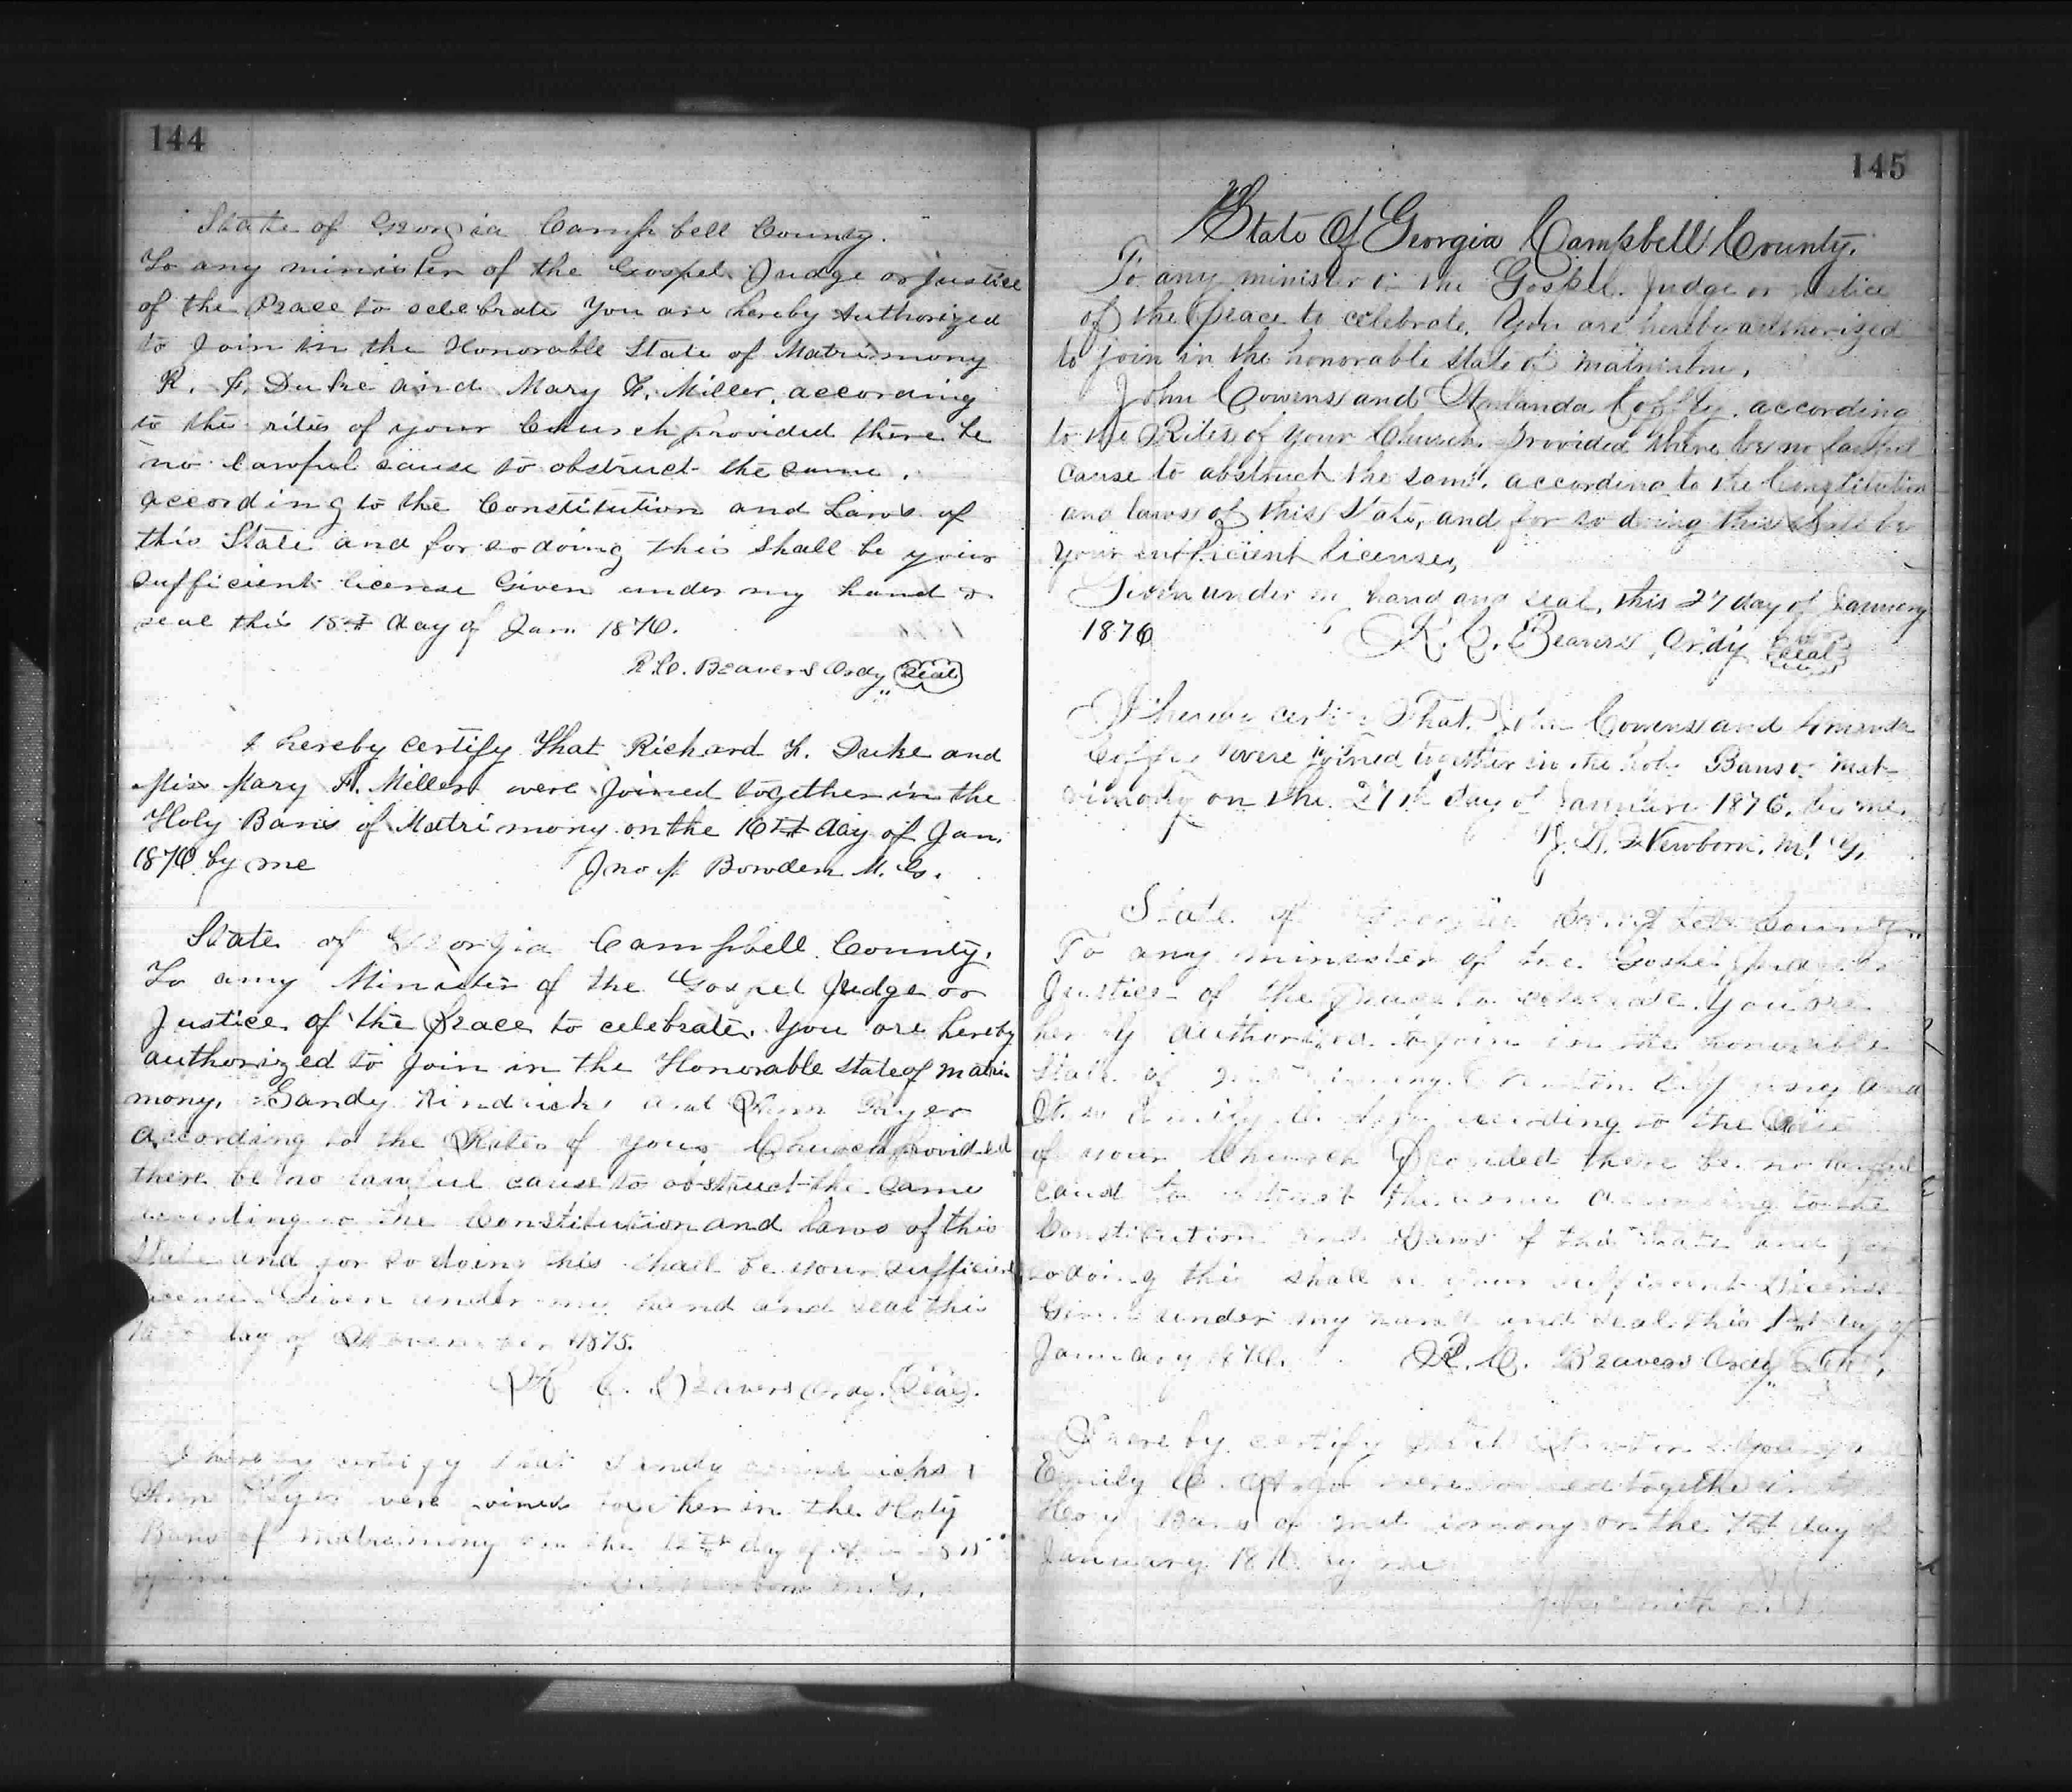 144
State of Georgia Campbell County.
To any minister of the Gospel Judge or Justice
of the Peace to celebrate You are hereby Authorized
to Join in the Honorable State of Matrimony
R. F. Duke and Mary F. Miller, according
to the rites of your Church provided there be
no lawful cause to obstruct the same.
according to the Constitution and Laws of
this State and for so doing this shall be your
sufficient license Given under my hand &
seal this 15th day of Jan. 1876.
R.C. Beavers Ordy Seal
I hereby certify That Richard F. Duke and
Miss Mary F. Miller were Joined together in the
Holy Bans of Matrimony on the 16th day of Jan.
1876 by me Jno Bowden M. G.
State of Georgia Campbell County.
To any Minister of the Gospel Judge or
Justice of the Peace to celebrate. You are hereby
authorized to Join in the Honorable state of matri
mony, Sandy and
According to the Rites of your Church provided
there be no lawful cause to obstruct the same
according to the Constitution and laws of this
State and for so doing this shall be your sufficient
license Given under my hand and seal this
day of November 1875.
R C. Beavers Ordy. Seal.
I hereby certify that Sandy
were joined together in the Holy
Bans of Matrimony on the 12th day of
by me M. G.
145
State Of Georgia Campbell County.
To any minister of the Gospel. Judge or Justice
of the Peace to celebrate. You are hereby authorized
to join in the honorable state of
John Cowens and according
to the Rites of your Church. Provided there be no lawful
cause to abstruct the same. according to the Constitution
and laws of this State, and for so doing this shall be
your sufficient license,
Given under my hand and seal, this 27 day of January
1876 R. C. Beavers Ordy seal
I hereby certify That John Cowens and Amanda
were joined together in the holy Bans of mat-
rimony on the 27th day of January 1876. by me,
Newborn. M. G.
State of Georgia Campbell County
To any minister of the Gospel Judge or
Justice of the Peace to celebrate. You are
hereby authorized to join in the honorable
State of matrimony. and
Emily C. according to the Rite
of your Church Provided there be no lawful
cause to obstruct the same according to the
Constitution and Laws of this State and for
so doing this shall be your sufficient License
Given under my hand and seal this 1st day of
January 1876. R. C. Beavers Ordy
I hereby certify that
Emily C. were joined together in the
Holy Bans of matrimony on the day of
January 1876 by me
Smith